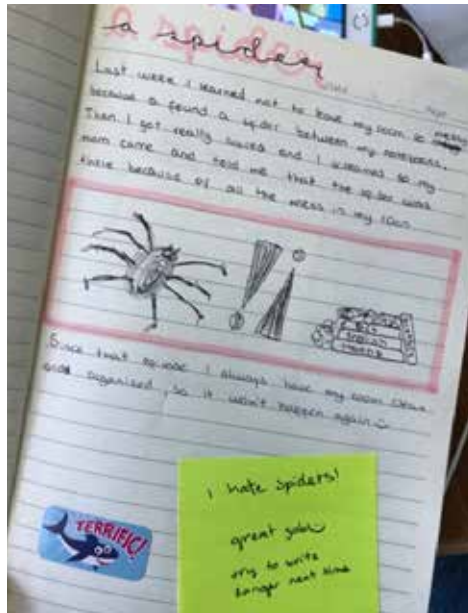 a spider
Last week I learned not to leave my room so messy
because a found a spider between my notebooks.
Then I got really scared and I screamed so my
mom came and told me that the spider was
there because of all the mess is my room
Since that episode I always have my room clean
and organised, so it won't happen again
TERRIFIC!
I hate spiders!
great job
try to write
longer next time